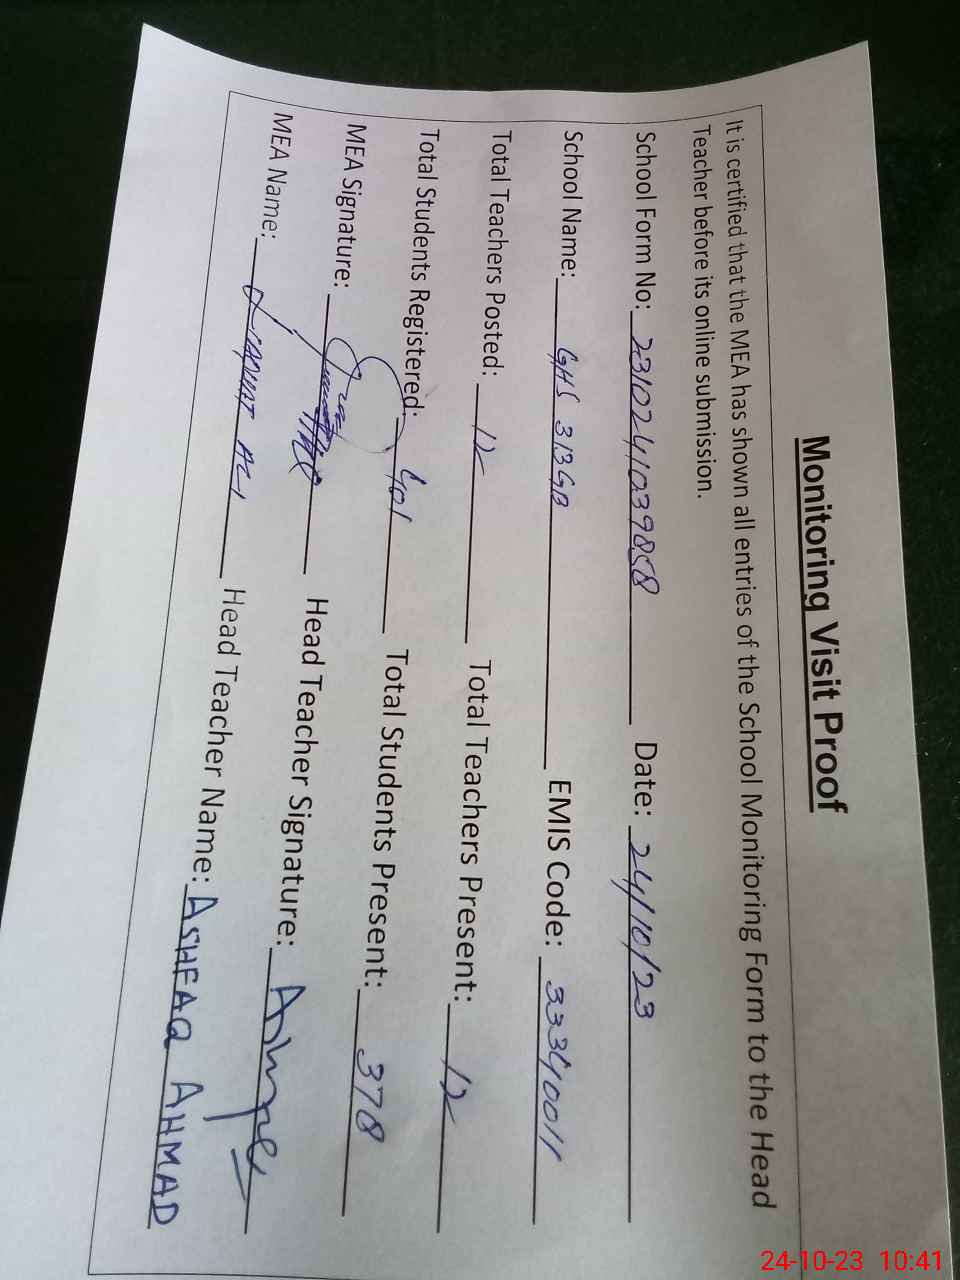 Monitoring Visit Proof
It is certified that the MEA has shown all entries of the School Monitoring Form to the Head
Teacher before its online submission.
School Form No: 23102411039858 Date: 24/10/23
School Name: GHS 313GB EMIS Code: 33340011
Total Teachers Posted: 12 Total Teachers Present: 12
Total Students Registered: 401 Total Students Present: 378
MEA Signature: Head Teacher Signature:
MEA Name: LIAQUAT ALI Head Teacher Name: ASHFAQ AHMAD
24-10-23 10:41